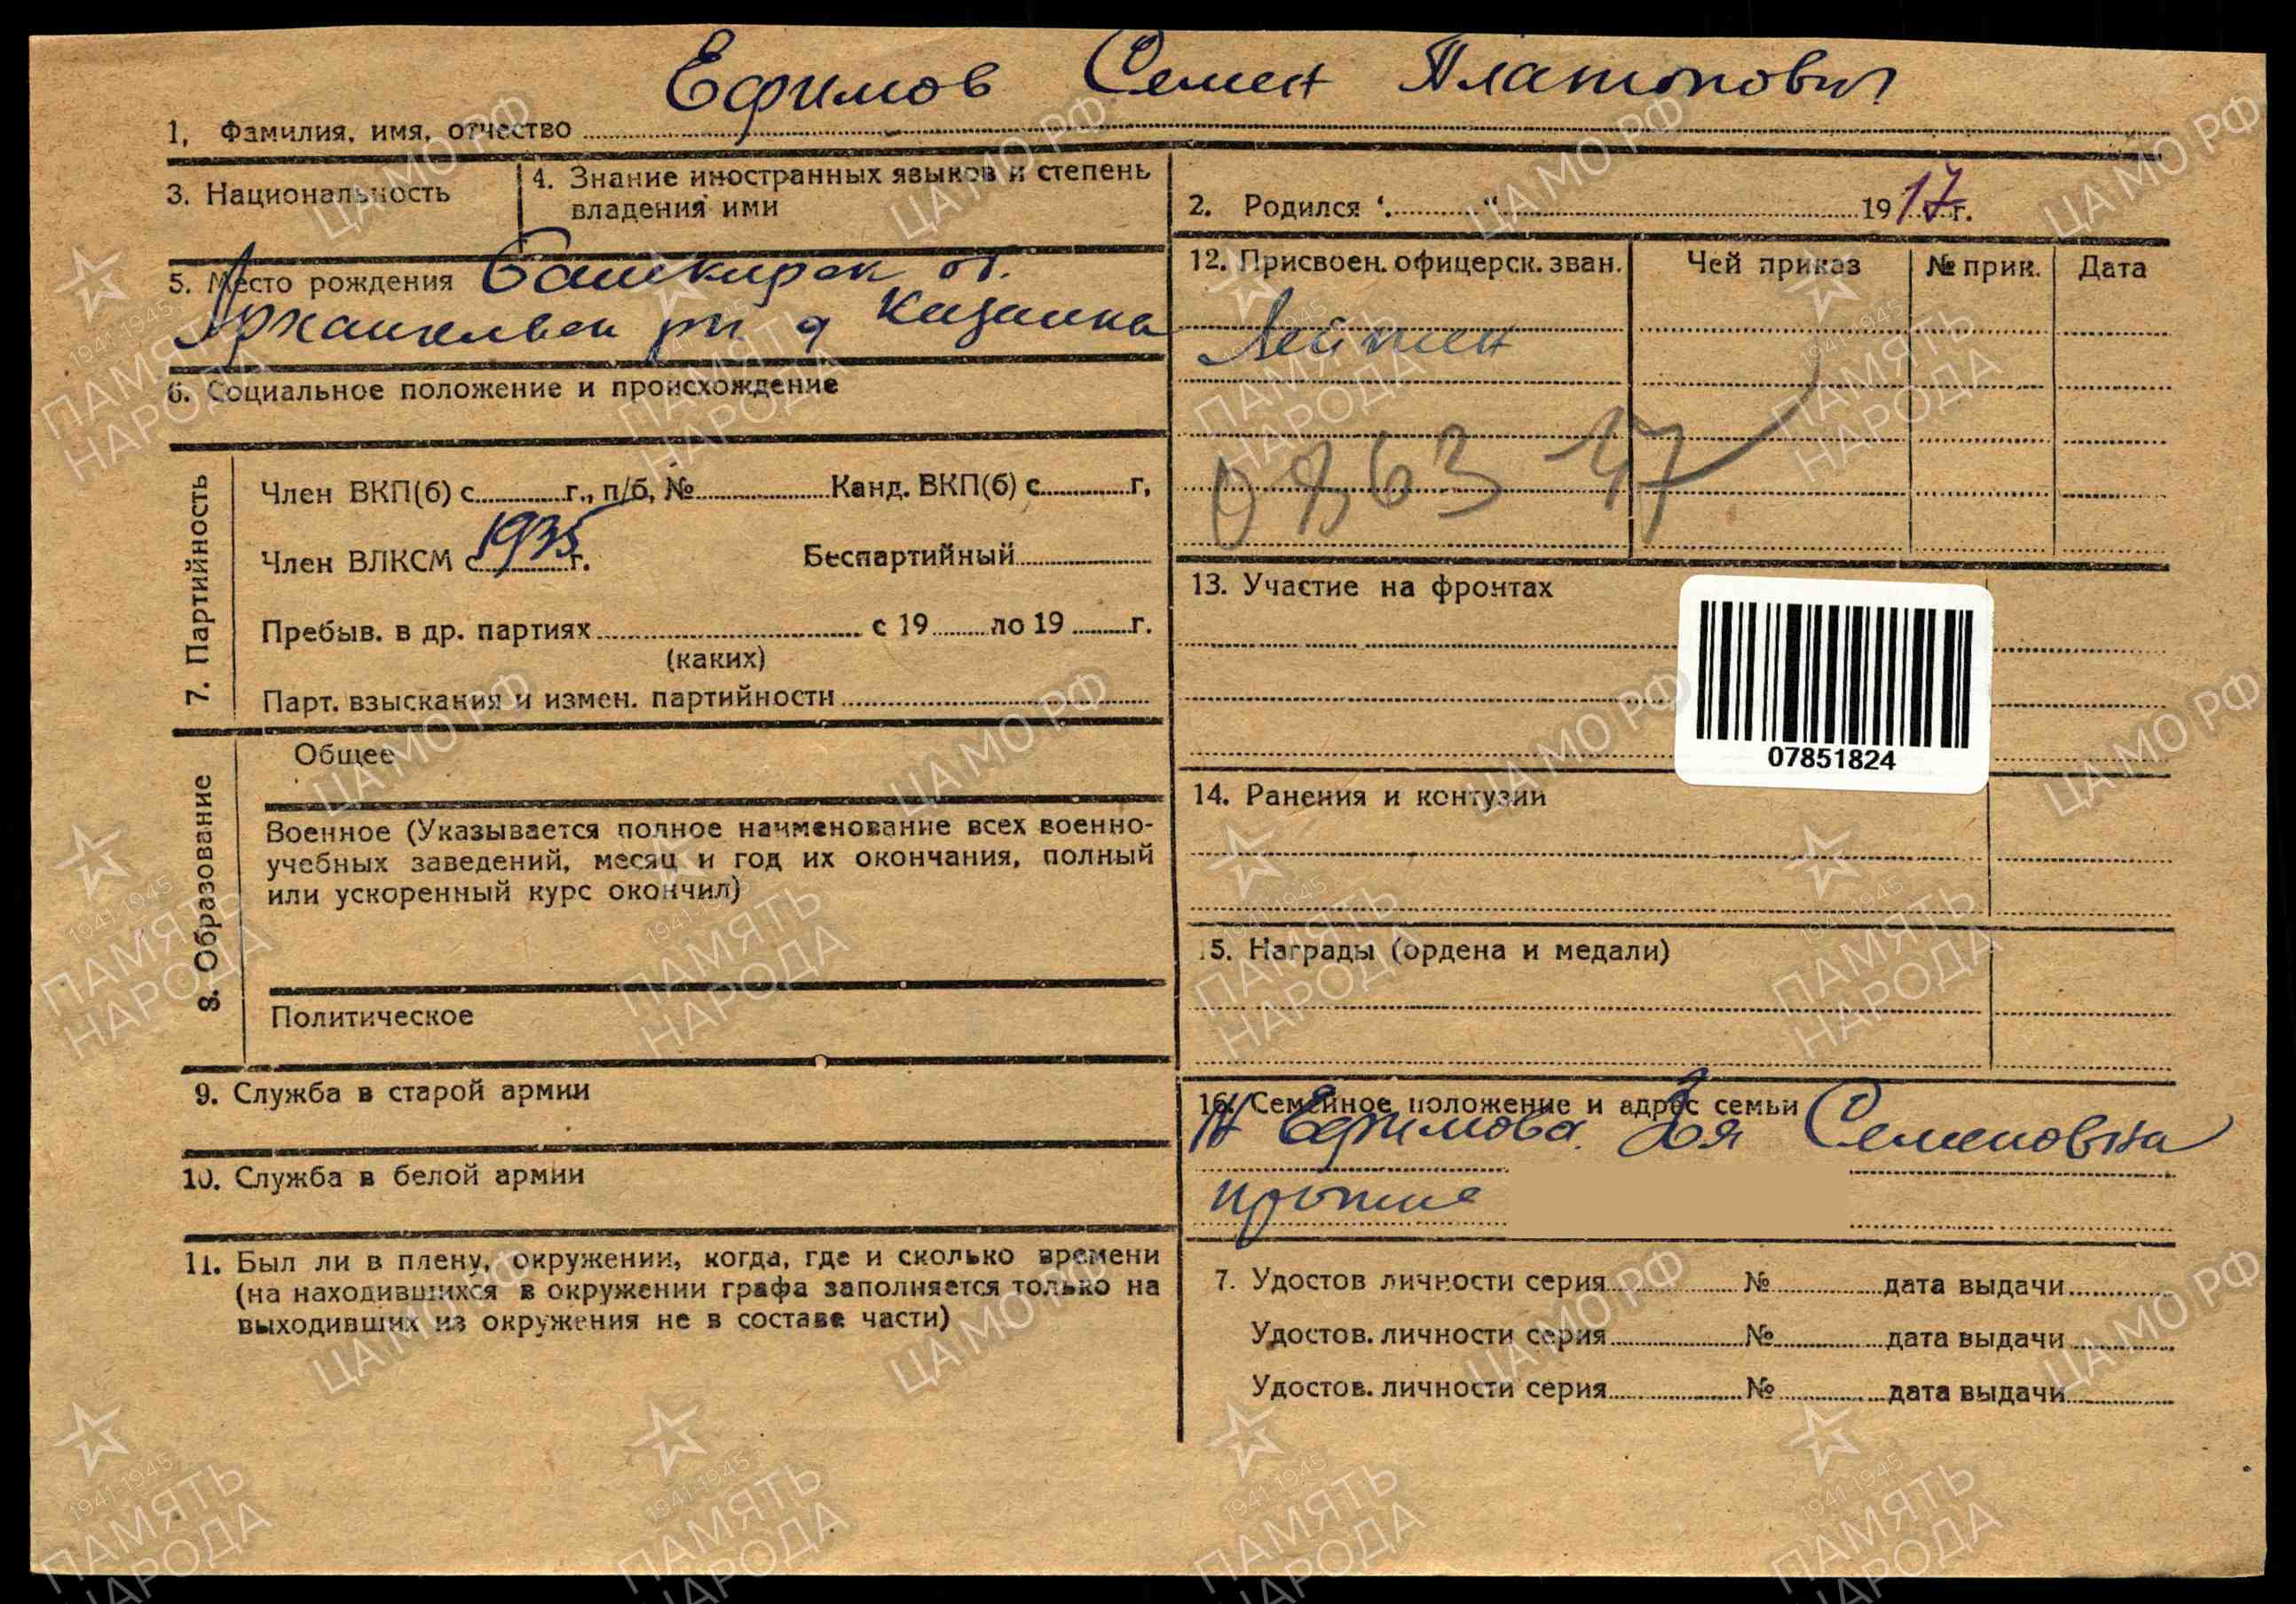 Ефимов Семен Платонович
1. Фамилия, имя, отчество
3. Национальность
4. Знание иностранных языков и степень
владения ими
2. Родился " " 1917 г.
5. Место рождения Башкирск об.
Архангельск рн. д Казанка
6. Социальное положение и происхождение
7. Партийность
Член ВКП(б) с г., п/б, № Канд. ВКП(б) с г,
Член ВЛКСМ с 1935 г. Беспартийный
Пребыв. в др. партиях с 19 по 19 г.
(каких)
Парт. взыскания и измен. партийности
8. Образование
Общее
Военное (Указывается полное наименование всех военно-
учебных заведений, месяц и год их окончания, полный
или ускоренный курс окончил)
Политическое
9. Служба в старой армии
10. Служба в белой армии
11. Был ли в плену, окружении, когда, где и сколько времени
(на находившихся в окружении графа заполняется только на
выходивших из окружения не в составе части)
12. Присвоен. офицерск. зван. Чей приказ № прик. Дата
Лейтен
13. Участие на фронтах
07851824
14. Ранения и контузии
5. Награды (ордена и медали)
16. Семейное положение и адрес семьи
Ефимова Семеновна
7. Удостов личности серия № дата выдачи
Удостов. личности серия № дата выдачи
Удостов. личности серия № дата выдачи
ЦА МО РФ
1941-1945
ПАМЯТЬ
НАРОДА